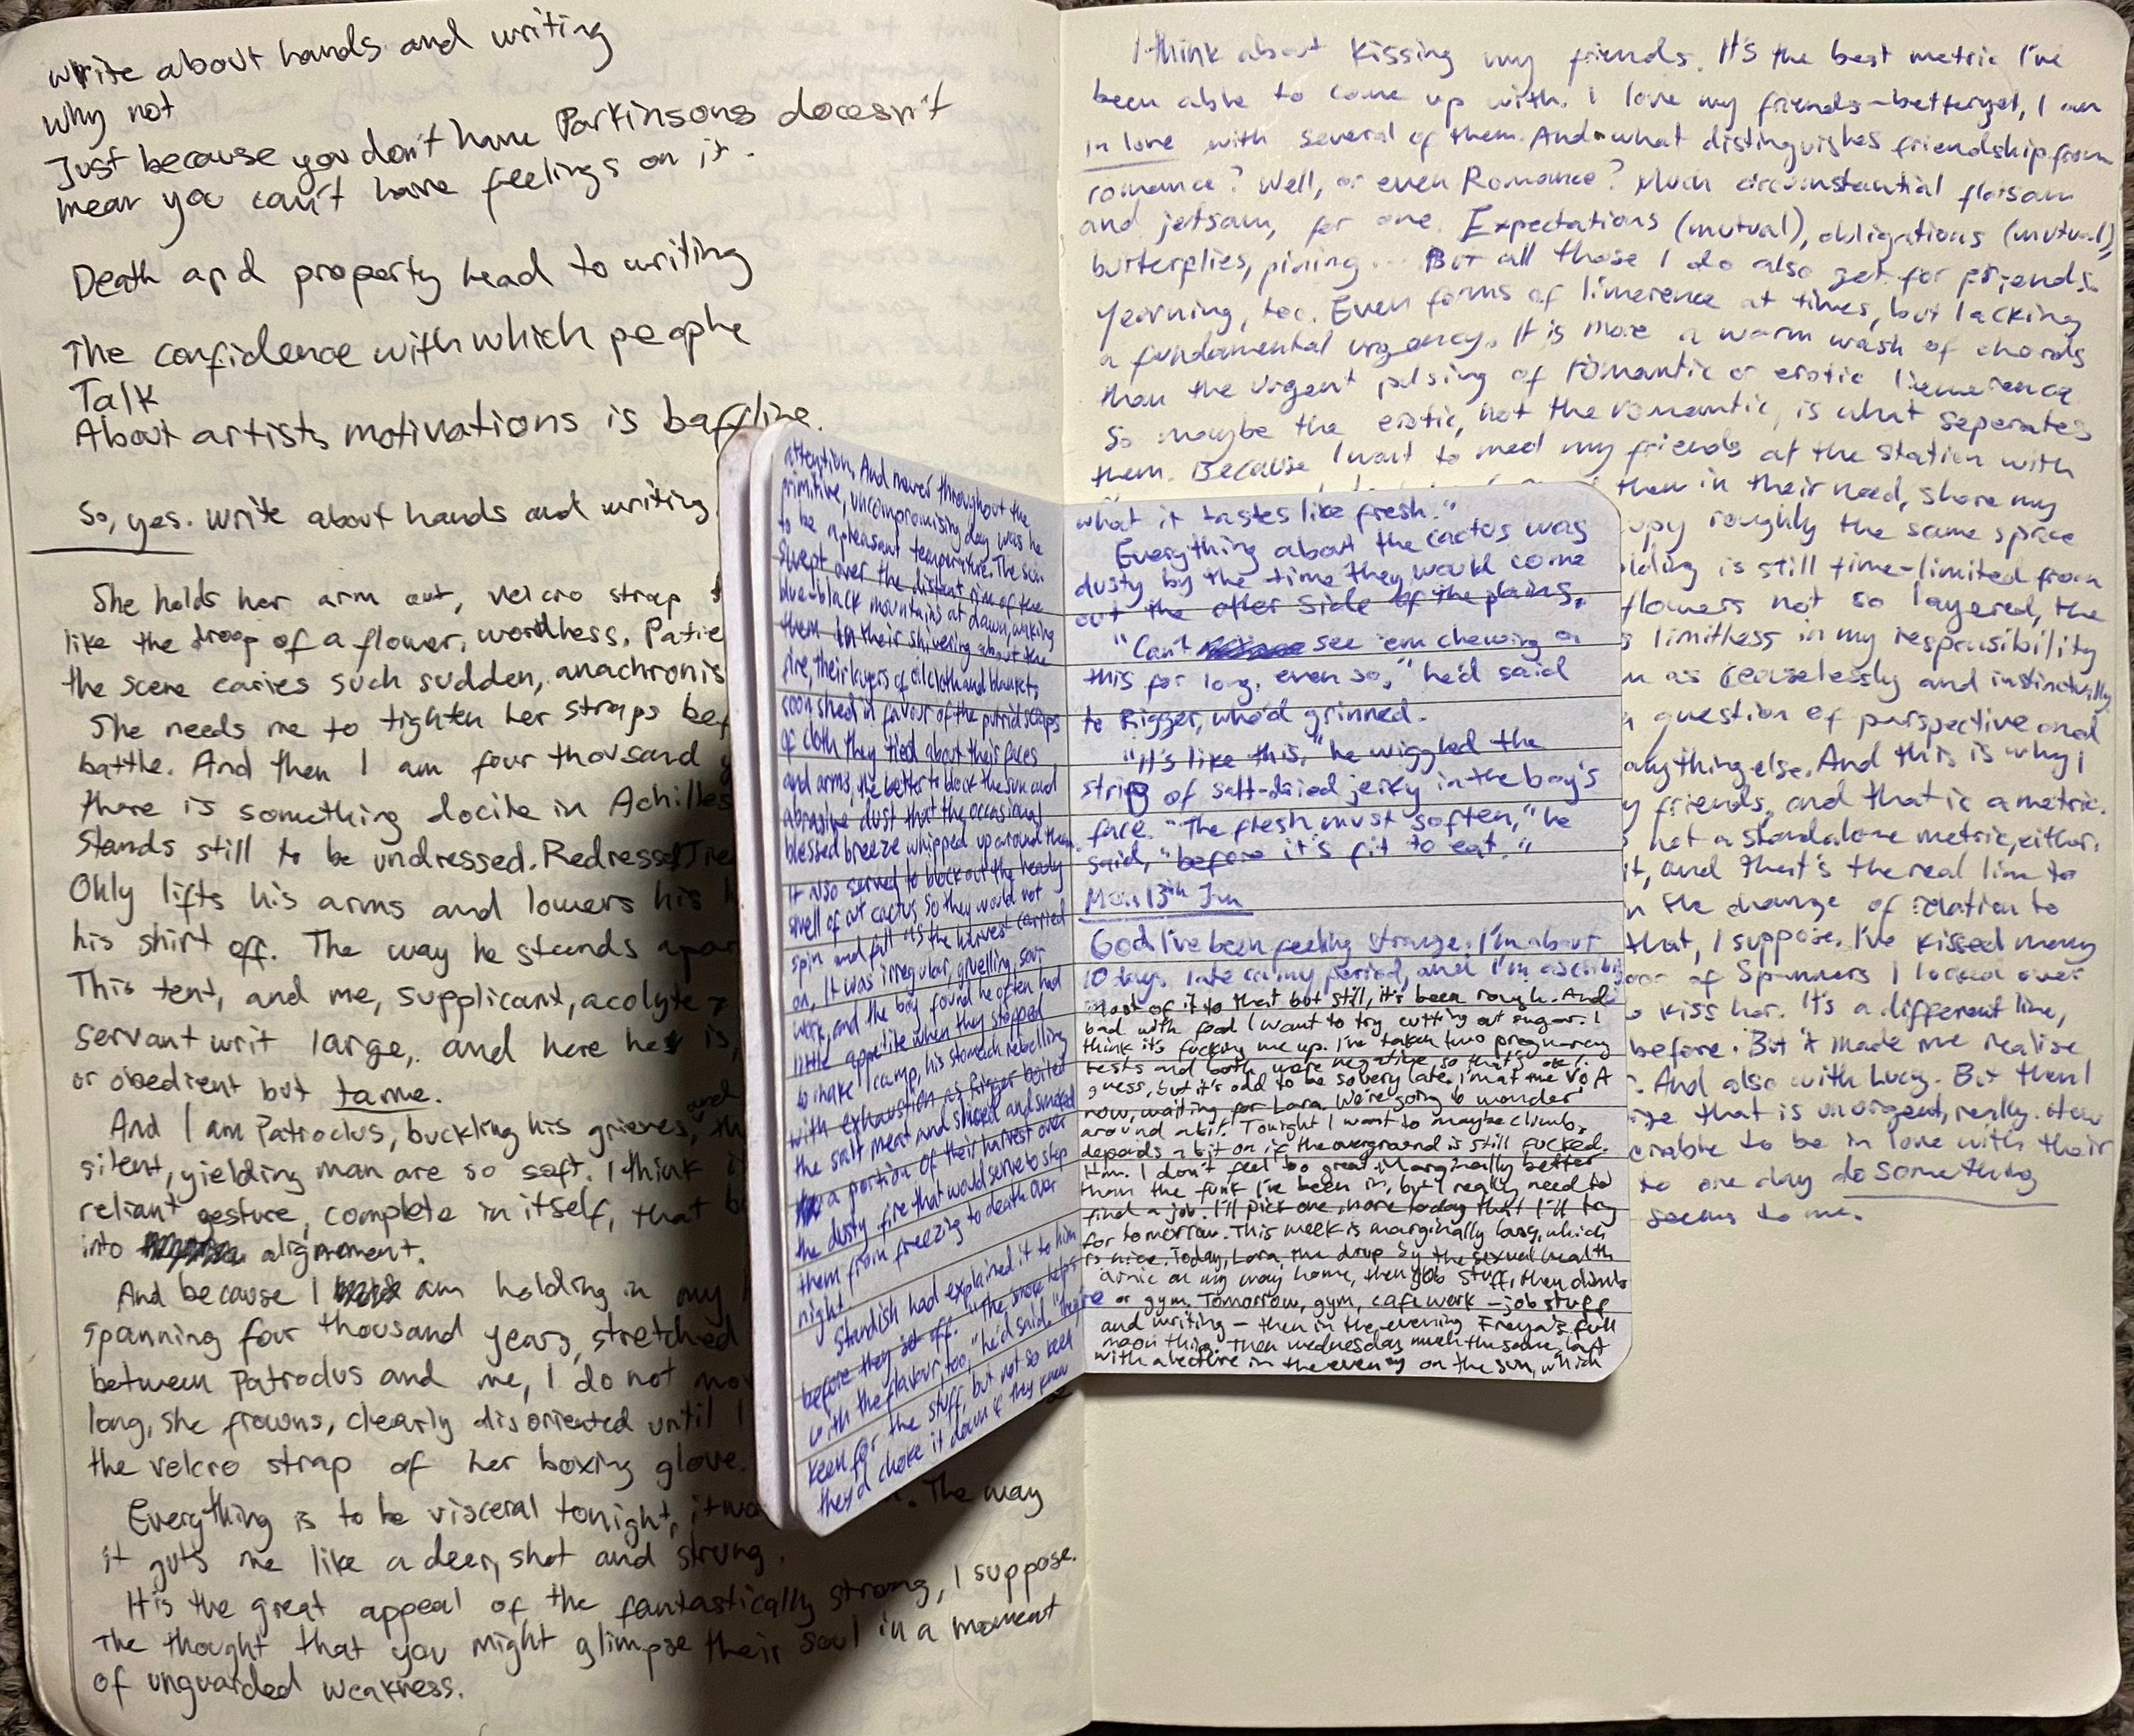 write about hands and writing
why not
Just because you don't have Parkinsons doesn't
mean you can't have feelings on it.
Death and property lead to writing
The confidence with which people
Talk
About artists motivations is baffling.
So, yes. Write about hands and writing.
She holds her arm out, velcro strap
like the droop of a flower, wordless. Patie
the scene caries such sudden, anachronis
She needs me to tighten her straps bef
battle. And then I am four thousand y
there is something docile in Achilles
Stands still to be undressed. Redressed
Only lifts his arms and lowers his h
his shirt off. The way he stands apar
This tent, and me, supplicant, acolyte
servant writ large, and here he is,
or obedient but tame.
And I am Patroclus, buckling his grieves, and th
silent, yielding man are so soft. I think i
reliant gesture, complete in itself, that b
into alignment.
And because I am holding in my h
spanning four thousand years, stretched
between Patroclus and me, I do not mov
long, she frowns, clearly disoriented until I
the velcro strap of her boxing glove.
Everything is to be visceral tonight, it wa . The way
it guts me like a deer, shot and strung.
It is the great appeal of the fantastically strong, I suppose.
The thought that you might glimpse their soul in a moment
of unguarded weakness.
attention. And never throughout the
primitive, uncompromising day was he
to be a pleasant temperature. The sun
swept over the distant rim of the
blue-black mountains at dawn, waking
them in their shivering about the
fire, their layers of oilcloth and blankets
soon shed in favour of the putrid scraps
of cloth they tied about their faces
and arms, the better to block the sun and
abrasive dust that the occasional
blessed breeze whipped up around them.
It also served to block out the heady
smell of cut cactus so they would not
spin and fall as the harvest carried
on. It was irregular, gruelling, sour
work, and the boy found he often had
little appetite when they stopped
to make camp, his stomach rebelling
with exhaustion as Rigger boiled
the salt meat and sliced and smoked
a portion of their harvest over
the dusty fire that would serve to stop
them from freezing to death over
night.
Standish had explained it to him
before they set off. "The smoke helps
with the flavour, too," he'd said. "They're
keen for the stuff, but not so keen
they'd choke it down if they knew
what it tastes like fresh."
Everything about the cactus was
dusty by the time they would come
out the other side of the plains.
"Can't see 'em chewing on
this for long, even so," he'd said
to Rigger, who'd grinned.
"It's like this," he wiggled the
strip of salt-dried jerky in the boy's
face. "The flesh must soften," he
said, "before it's fit to eat."
Mon 13th Jan
God I've been feeling strange. I'm about
10 days late on my period, and I'm ascribi
most of it to that but still, it's been rough. And
bad with food I want to try cutting out sugar. I
think it's fucking me up. I've taken two pregnancy
tests and both were negative so that's ok I
guess, but it's odd to be so very late. I'm at the V&A
now, waiting for Lara. We're going to wander
around a bit. Tonight I want to maybe climb,
depends a bit on if the overground is still fucked.
Hm. I don't feel too great. Marginally better
than the funk I've been in, but I really need to
find a job. I'll pick one more today that I'll try
for tomorrow. This week is marginally busy, which
is nice. Today, Lara, the drop by the sexual health
clinic on my way home, then job stuff, then climb
or gym. Tomorrow, gym, cafe work - job stuff
and writing - then in the evening Freya's full
moon thing. Then wednesday much the same, but
with a lecture in the evening on the sun, which
I think about kissing my friends. It's the best metric I've
been able to come up with. I love my friends - better yet, I am
in love with several of them. And what distinguishes friendship from
romance? Well, or even Romance? Much circumstantial flotsam
and jetsam, for one. Expectations (mutual), obligations (mutual),
butterflies, pining... But all those I do also get for friends.
Yearning, too. Even forms of limerence at times, but lacking
a fundamental urgency. It is more a warm wash of chords
than the urgent pulsing of romantic or erotic limerence
So maybe the erotic, not the romantic, is what seperates
them. Because I want to meet my friends at the station with
them in their need, share my
upy roughly the same space
lding is still time-limited from
flowers not so layered, the
s limitless in my responsibility
m as ceaselessly and instinctually
a question of perspective and
anything else. And this is why I
y friends, and that is a metric.
not a standalone metric, either.
it, and that's the real line to
n the change of relation to
that, I suppose. I've kissed many
oor of Spanners I looked over
o kiss her. It's a different line,
before. But it made me realise
. And also with Lucy. But then I
ize that is unurgent, really. How
erable to be in love with their
to one day do something
seems to me.